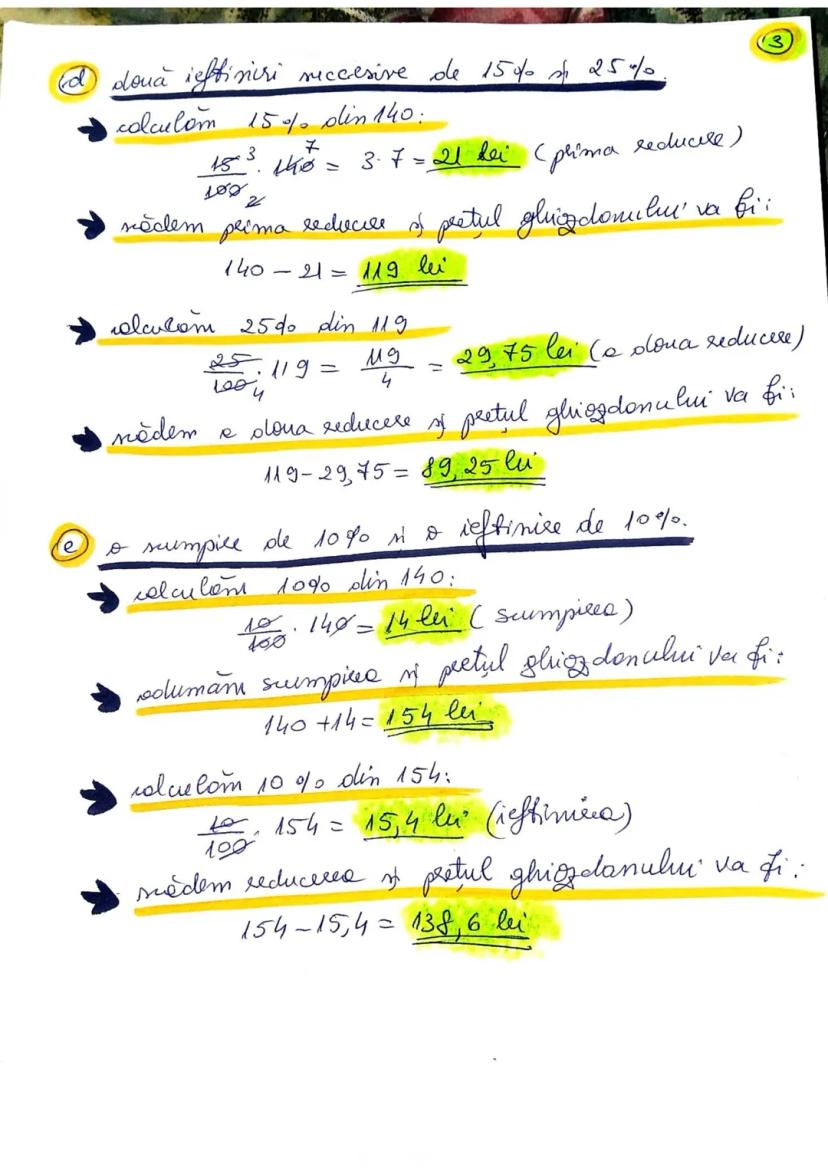 3
d două ieftiniri succesive de 15% și 25%.
→ calculăm 15% din 140:
15 3/100 2 · 140 7 = 3·7 = 21 lei (prima reducere)
→ scădem prima reducere și prețul ghiozdanului va fi:
140 – 21 = 119 lei
→ calculăm 25% din 119
25/100 4 · 119 = 119/4 = 29,75 lei (a doua reducere)
→ scădem a doua reducere și prețul ghiozdanului va fi:
119 – 29,75 = 89,25 lei
e o scumpire de 10% și o ieftinire de 10%.
→ calculăm 10% din 140:
10/100 · 140 = 14 lei (scumpirea)
→ adunăm scumpirea și prețul ghiozdanului va fi:
140 + 14 = 154 lei
→ calculăm 10% din 154:
10/100 · 154 = 15,4 lei (ieftinirea)
→ scădem reducerea și prețul ghiozdanului va fi:
154 – 15,4 = 138,6 lei